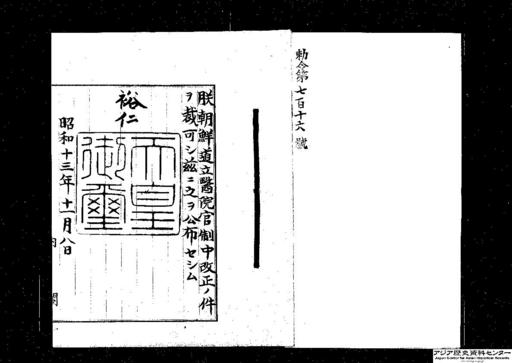 勅令第七百十六號
朕朝鮮道立醫院官制中改正ノ件
ヲ裁可シ茲ニ之ヲ公布セシム
裕仁
天皇御璽
昭和十三年十一月八日
内閣
アジア歴史資料センター
Japan Center for Asian Historical Records